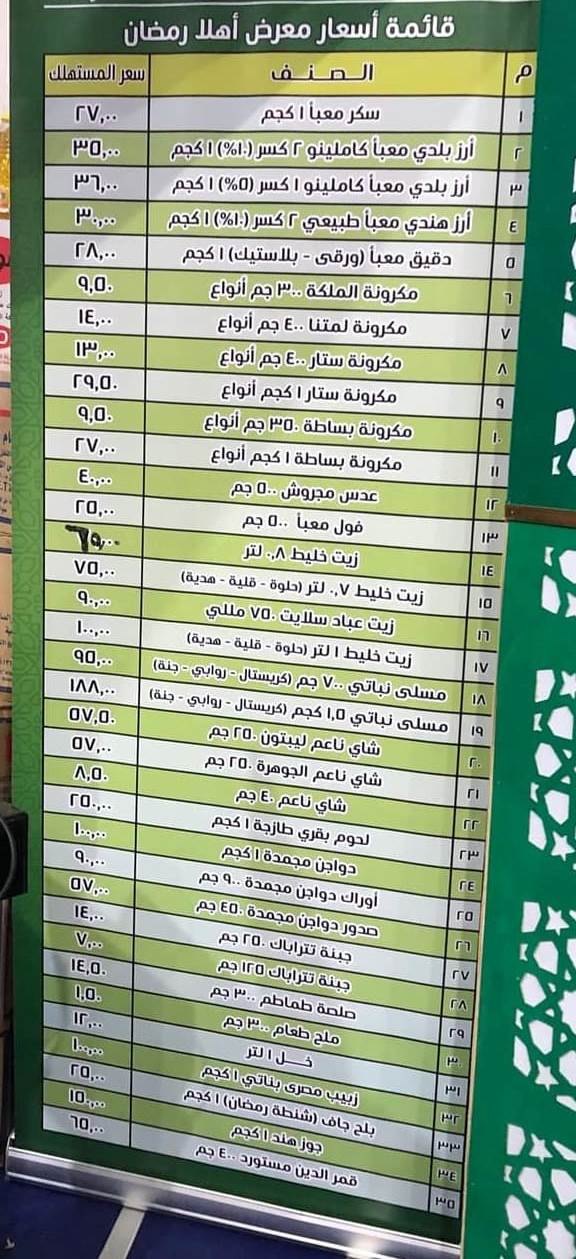 قائمة أسعار معرض أهلا رمضان
م الصنف سعر المستهلك
١ سكر معبأ ١ كجم ٢٧,٠٠
٢ أرز بلدي معبأ كاملينو ٢ كسر (١٠%) ١ كجم ٣٥,٠٠
٣ أرز بلدي معبأ كاملينو ١ كسر (٥%) ١ كجم ٣٦,٠٠
٤ أرز هندي معبأ طبيعي ٢ كسر (١٠%) ١ كجم ٣٠,٠٠
٥ دقيق معبأ (ورقى - بلاستيك) ١ كجم ٢٨,٠٠
٦ مكرونة الملكة ٣٠٠ جم أنواع ٩,٥٠
٧ مكرونة لمتنا ٤٠٠ جم أنواع ١٤,٠٠
٨ مكرونة ستار ٤٠٠ جم أنواع ١٣,٠٠
٩ مكرونة ستار ١ كجم أنواع ٢٩,٥٠
١٠ مكرونة بساطة ٣٥٠ جم أنواع ٩,٥٠
١١ مكرونة بساطة ١ كجم أنواع ٢٧,٠٠
١٢ عدس مجروش ٥٠٠ جم ٤٠,٠٠
١٣ فول معبأ ٥٠٠ جم ٢٥,٠٠
١٤ زيت خليط ٠,٨ لتر
١٥ زيت خليط ٠,٧ لتر (حلوة - قلية - هدية) ٧٥,٠٠
١٦ زيت عباد سلايت ٧٥٠ مللي ٩٠,٠٠
١٧ زيت خليط ١ لتر (حلوة - قلية - هدية) ١٠٠,٠٠
١٨ مسلى نباتي ٧٠٠ جم (كريستال - روابي - جنة) ٩٥,٠٠
١٩ مسلى نباتي ١,٥ كجم (كريستال - روابي - جنة) ١٨٨,٠٠
٢٠ شاي ناعم ليبتون ٢٥٠ جم ٥٧,٥٠
٢١ شاي ناعم الجوهرة ٢٥٠ جم ٥٧,٠٠
٢٢ شاي ناعم ٤٠ جم ٨,٥٠
٢٣ لحوم بقري طازجة ١ كجم ٢٥٠,٠٠
٢٤ دواجن مجمدة ١ كجم ١٠٠,٠٠
٢٥ أوراك دواجن مجمدة ٩٠٠ جم ٩٠,٠٠
٢٦ صدور دواجن مجمدة ٤٥٠ جم ٥٧,٠٠
٢٧ جبنة تتراباك ٢٥٠ جم ١٤,٠٠
٢٨ جبنة تتراباك ١٢٥ جم ٧,٠٠
٢٩ صلصة طماطم ٣٠٠ جم ١٤,٥٠
٣٠ ملح طعام ٣٠٠ جم ١,٥٠
٣١ خل ١ لتر ١٢,٠٠
٣٢ زبيب مصرى بناتي ١ كجم ١٠٠,٠٠
٣٣ بلح جاف (شنطة رمضان) ١ كجم ٢٥,٠٠
٣٤ جوز هند ١ كجم ١٥٠,٠٠
٣٥ قمر الدين مستورد ٤٠٠ جم ٦٥,٠٠